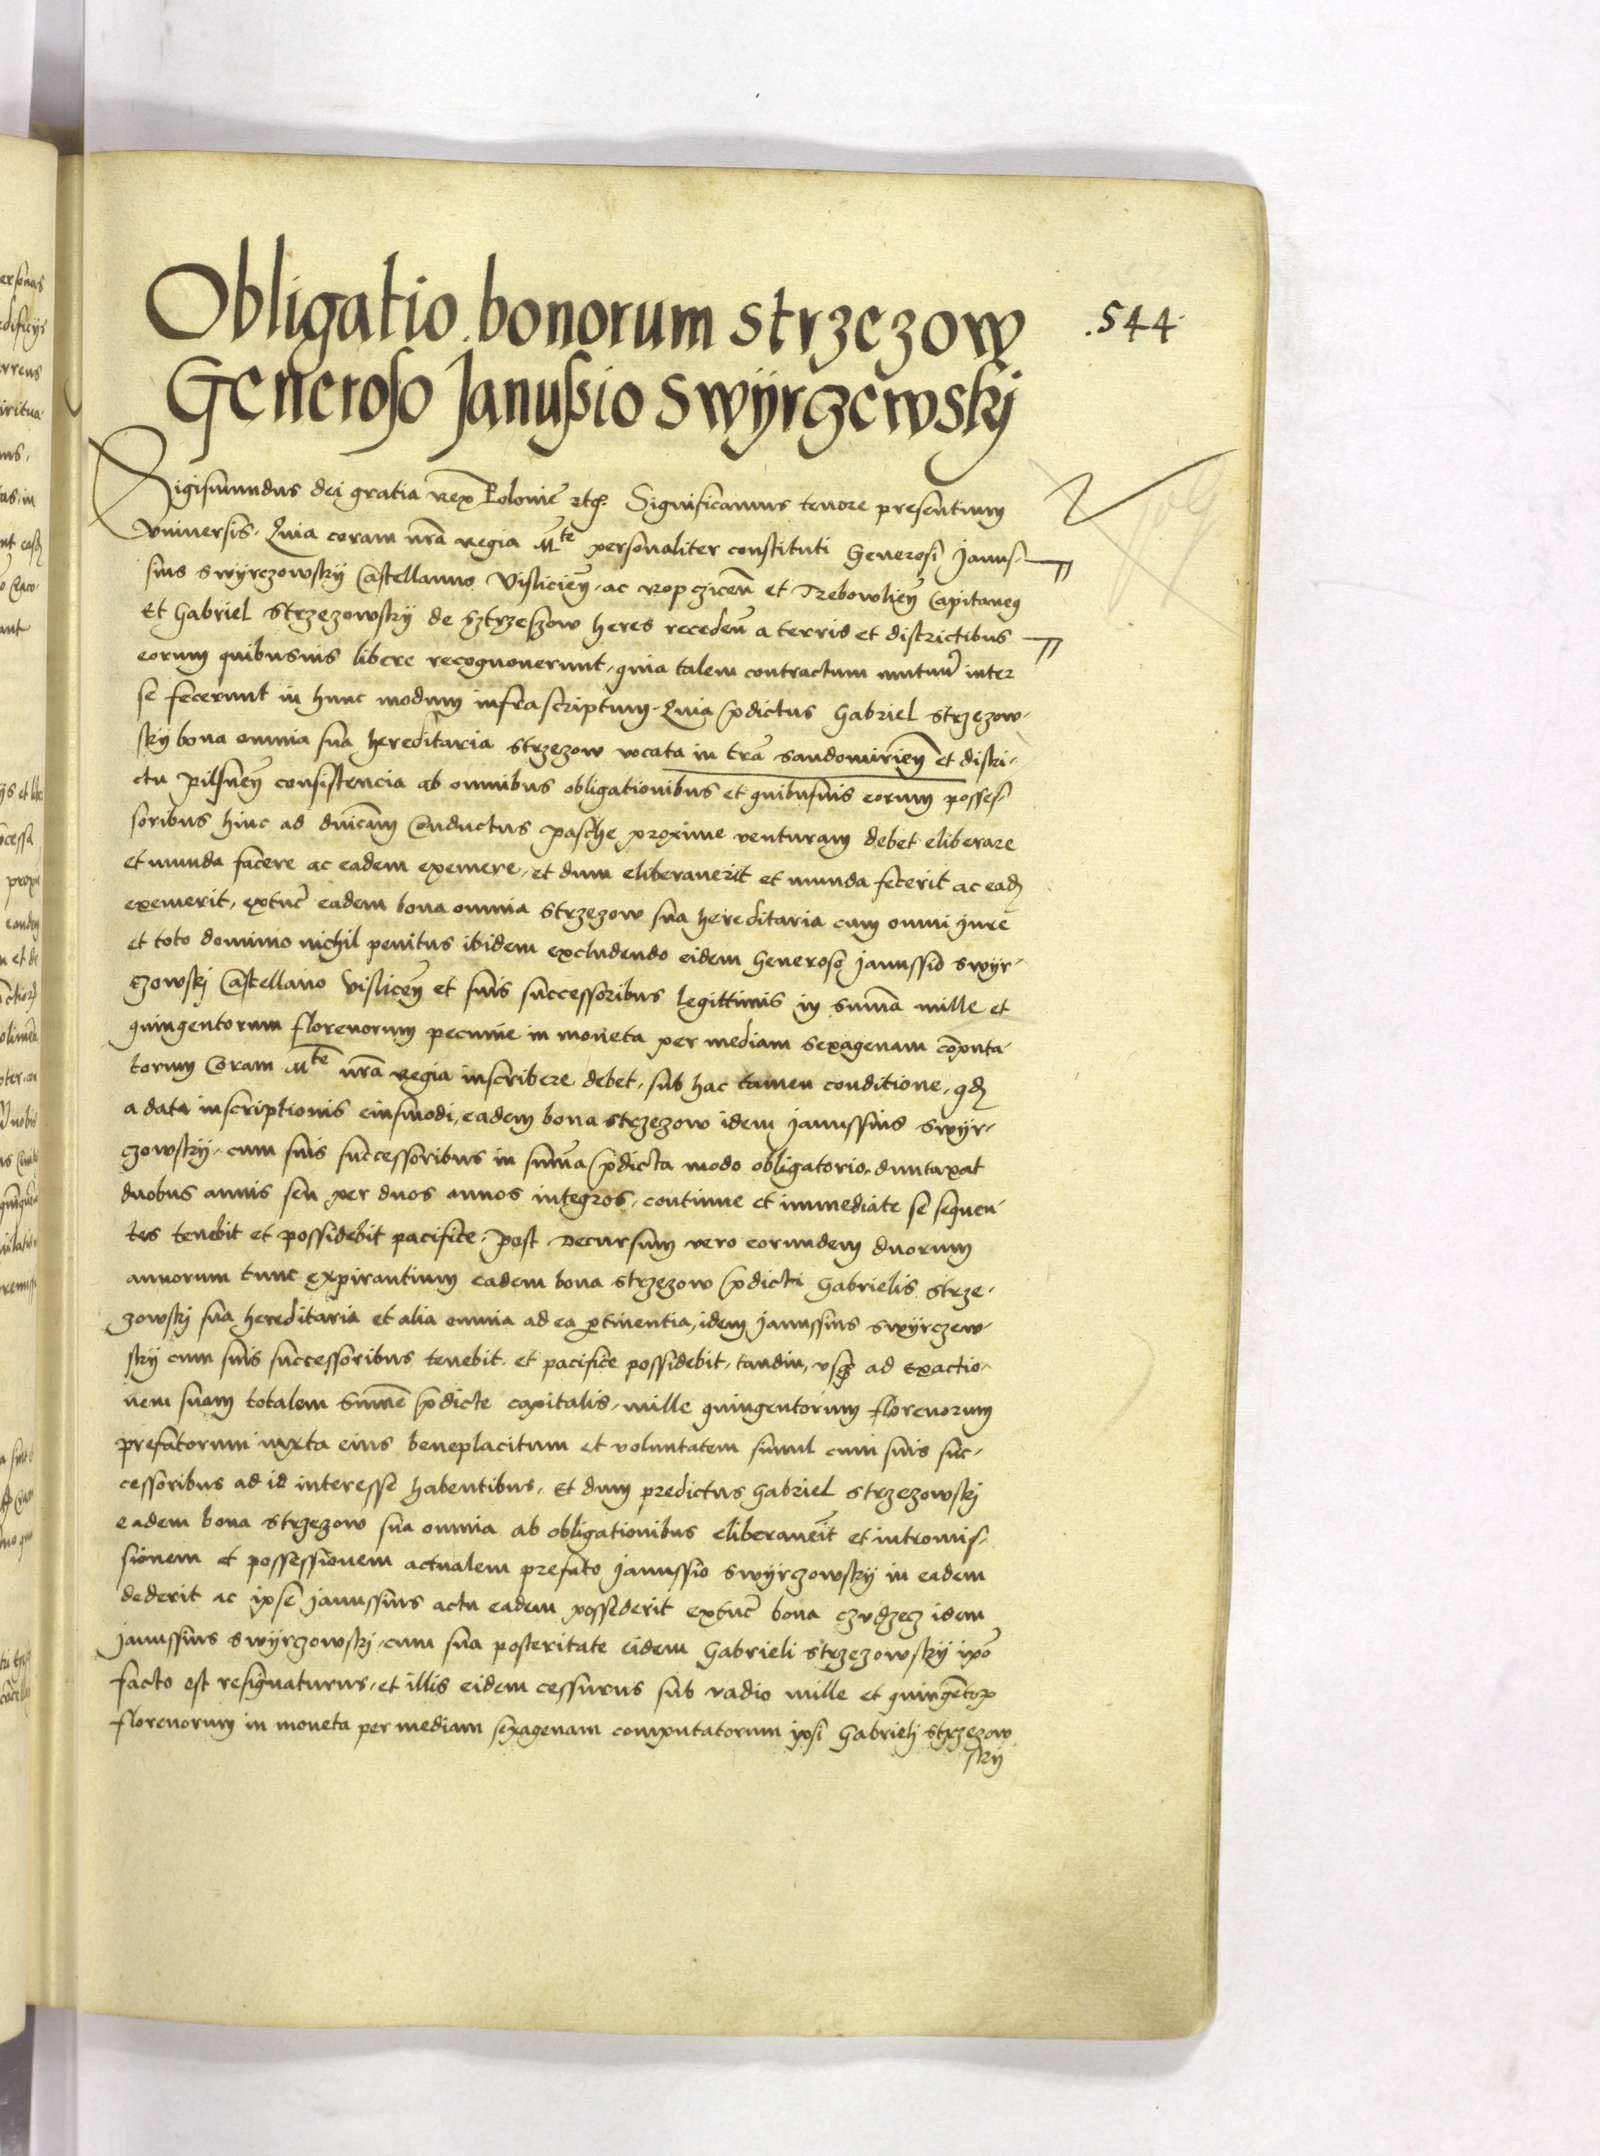 Obligatio bonorum Strzezow
.544.
Generoso Janussio Swÿrczewskj
Sigismundus dei gratia rex Polonie etc. Significamus tenore presentium
Vniuersis. Quia coram nra regia Mte personaliter constituti Generosi Janus-
sius Swÿrczowskÿ Castellanus Visliciēn. ac Ropczicen et Trebowlien Capitaneq
Et Gabriel Strzezowskÿ de Sztrzeszow heres receden a terris et districtibus
eorum quibusuis libere recognouerunt, quia talem contractum mutuū inter
se fecerunt in hunc modum infrascriptum. Quia pdictus Gabriel Strzezow-
skÿ bona omnia sua hereditaria Strzezow vocata in tra Sandomirien et distri-
ctu Pilsnen consistencia ab omnibus obligationibus et quibusuis eorum posses-
soribus hinc ad dnicam Conductus Pasche proxime venturam debet eliberare
et munda facere ac eadem exemere, et dum eliberauerit et munda fecerit ac ead
exemerit, extuc eadem bona omnia Strzezow sua hereditaria cum omni jure
et toto dominio nichil penitus ibidem excludendo eidem Generoso Janussio Swÿr-
czowskj Castellano Vislicen et suis successoribus legittimis in suma mille et
quingentorum florenorum pecunie in moneta per mediam sexagenam coputa-
torum Coram Mte nra regia inscribere debet, sub hac tamen conditione, qd
a data inscriptionis eiusmodi, eadem bona Strzezow idem Janussius Swÿr-
czowskÿ, cum suis successoribus in suma pdicta modo obligatorio duntaxat
duobus annis seu per duos annos integros, continue et immediate se sequen-
tes tenebit et possidebit pacifice. Post decursum vero eorundem duorum
annorum tunc expirantium eadem bona Strzezow pdicti Gabrielis Strze-
zowskj sua hereditaria et alia omnia ad ea ptinentia, idem Janussius Swÿrczew-
skÿ cum suis successoribus tenebit et pacifice possidebit, tamdiu, vsq ad exactio-
nem suam totalem sume pdicte capitalis, mille quingentorum florenorum
prefatorum iuxta eius beneplacitum et voluntatem simul cum suis suc-
cessoribus ad id interesse habentibus. Et dum predictus Gabriel Strzezowskj
eadem bona Strzezow sua omnia ab obligationibus eliberauerit et intromis-
sionem et possessionem actualem prefato Janussio Swÿrczowskÿ in eadem
dederit ac ipse Janussius actu eadem possiderit extuc bona Czudzecz idem
Janussius Swÿrczowskj, cum sua posteritate eidem Gabrieli Strzezowskÿ ipo
facto est resignaturus, et illis eidem cessurus sub vadio mille et quingetor
florenorum in moneta per mediam sexagenam computatorum ipsi Gabrielj Strzezow
skÿ